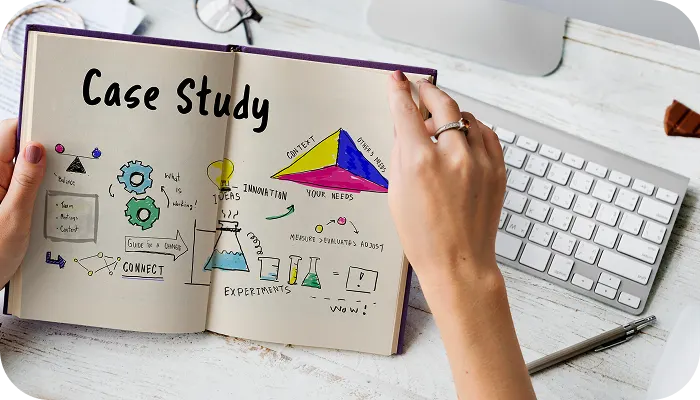 Case Study
Balance
What
is
working!
- Team
- Matings
- Content
GUIDE to a CHANGE
CONNECT
IDEAS
INNOVATION
CONTEXT
OTHER'S NEEDS
YOUR NEEDS
MEASURE > EVALUATE > ADJUST
EXPERIMENTS
=
!
WOW!